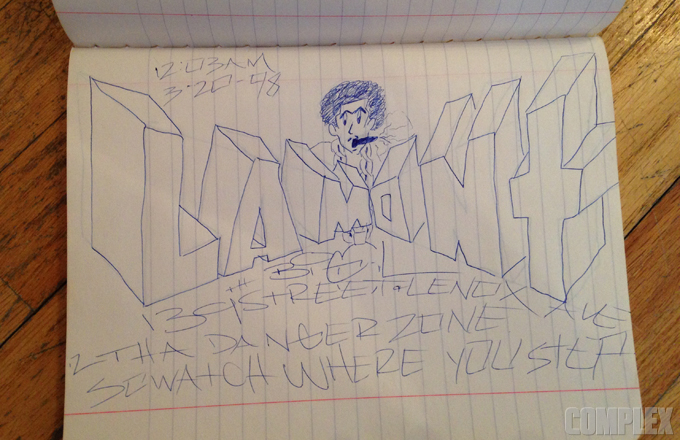 12:03AM
3-20-98
LAMONT
BIG L
139TH STREET & LENOX AVE
2 THA DANGER ZONE
WATCH WHERE YOU STEP
COMPLEX